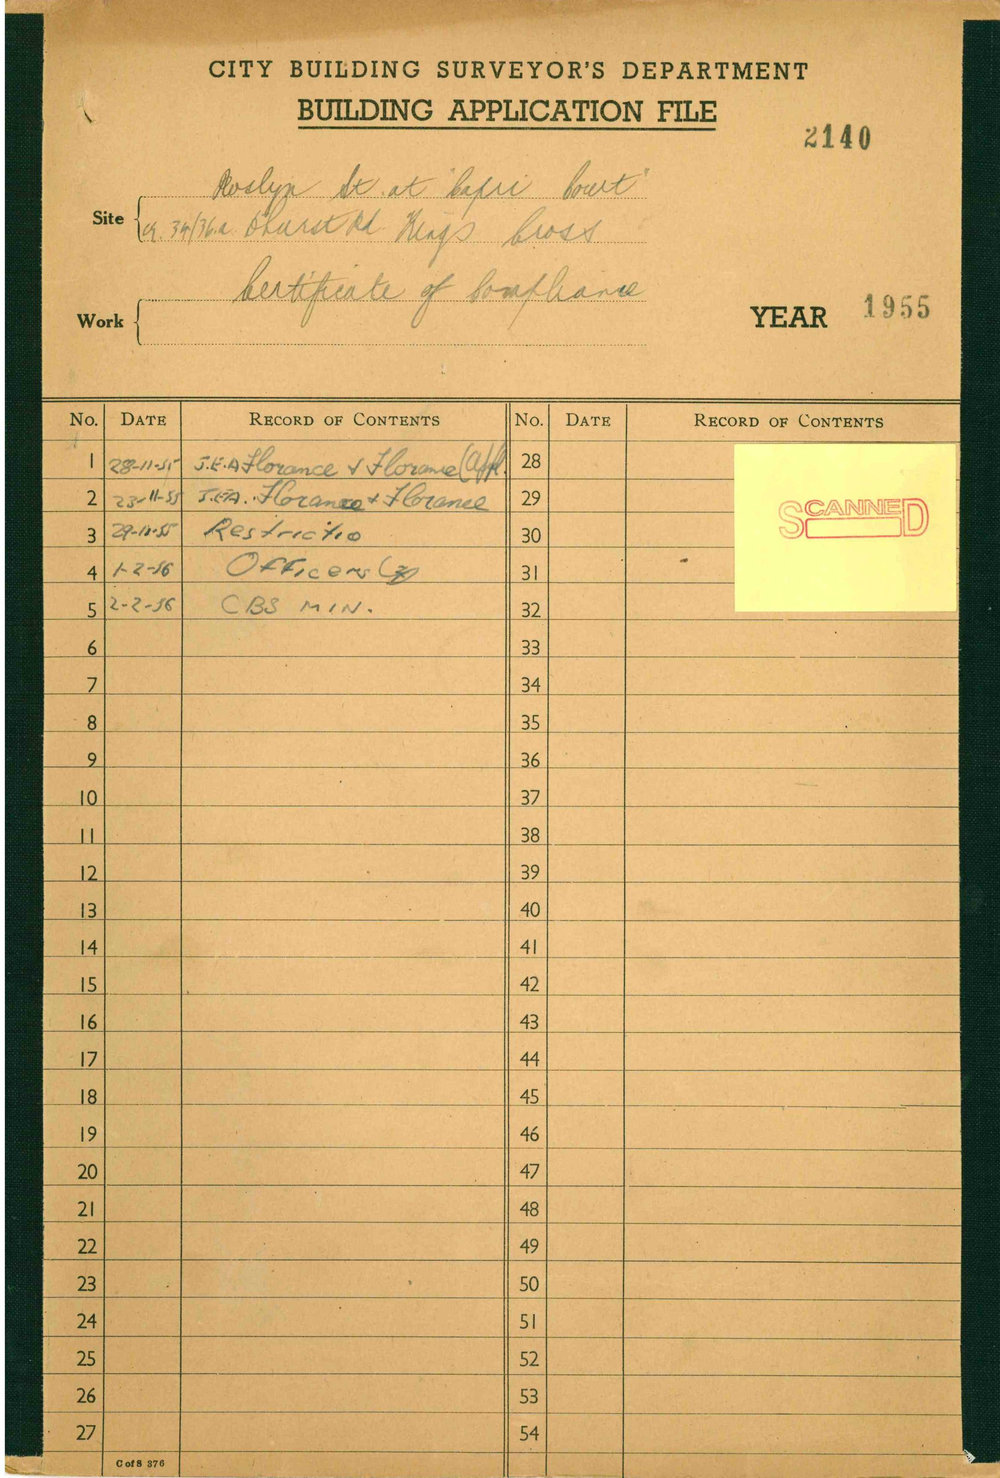 CITY BUILDING SURVEYOR'S DEPARTMENT
BUILDING APPLICATION FILE
2140
Site
Roslyn St. at "Capri Court"
34/36a Dhurst Rd Kings Cross
Work
Certificate of Compliance
YEAR 1955
No. DATE RECORD OF CONTENTS No. DATE RECORD OF CONTENTS
1 28-11-55 J.E.A Florance & Florance (Appl. 28
2 23-11-55 J.E.A. Florance & Florance 29
3 29-11-55 Restrictio 30
4 1-2-56 Officers 31
5 2-2-56 CBS MIN. 32
SCANNED
6 33
7 34
8 35
9 36
10 37
11 38
12 39
13 40
14 41
15 42
16 43
17 44
18 45
19 46
20 47
21 48
22 49
23 50
24 51
25 52
26 53
27 54
C of S 376